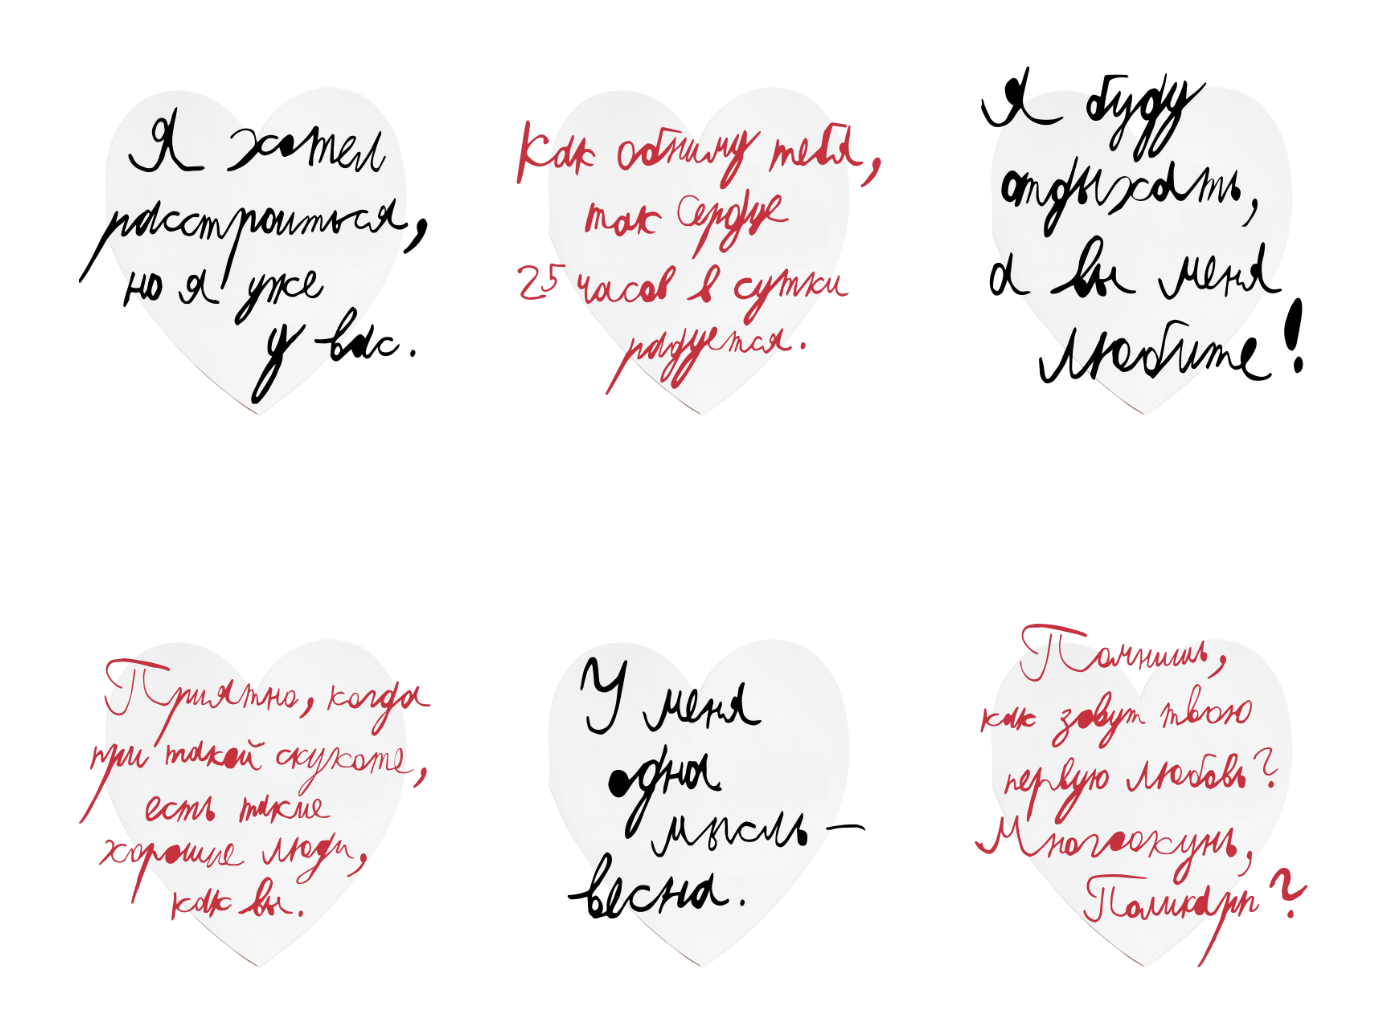 Я хотел
расстроиться,
но я уже
у вас.
Как обниму тебя,
так Сердце
25 часов в сутки
радуется.
Я буду
отдыхать,
а вы меня
любите!
Приятно, когда
при такой скукоте,
есть такие
хорошие люди,
как вы.
У меня
одна
мысль —
весна.
Помнишь,
как зовут твою
первую любовь?
Многоокунь,
Поликарп?